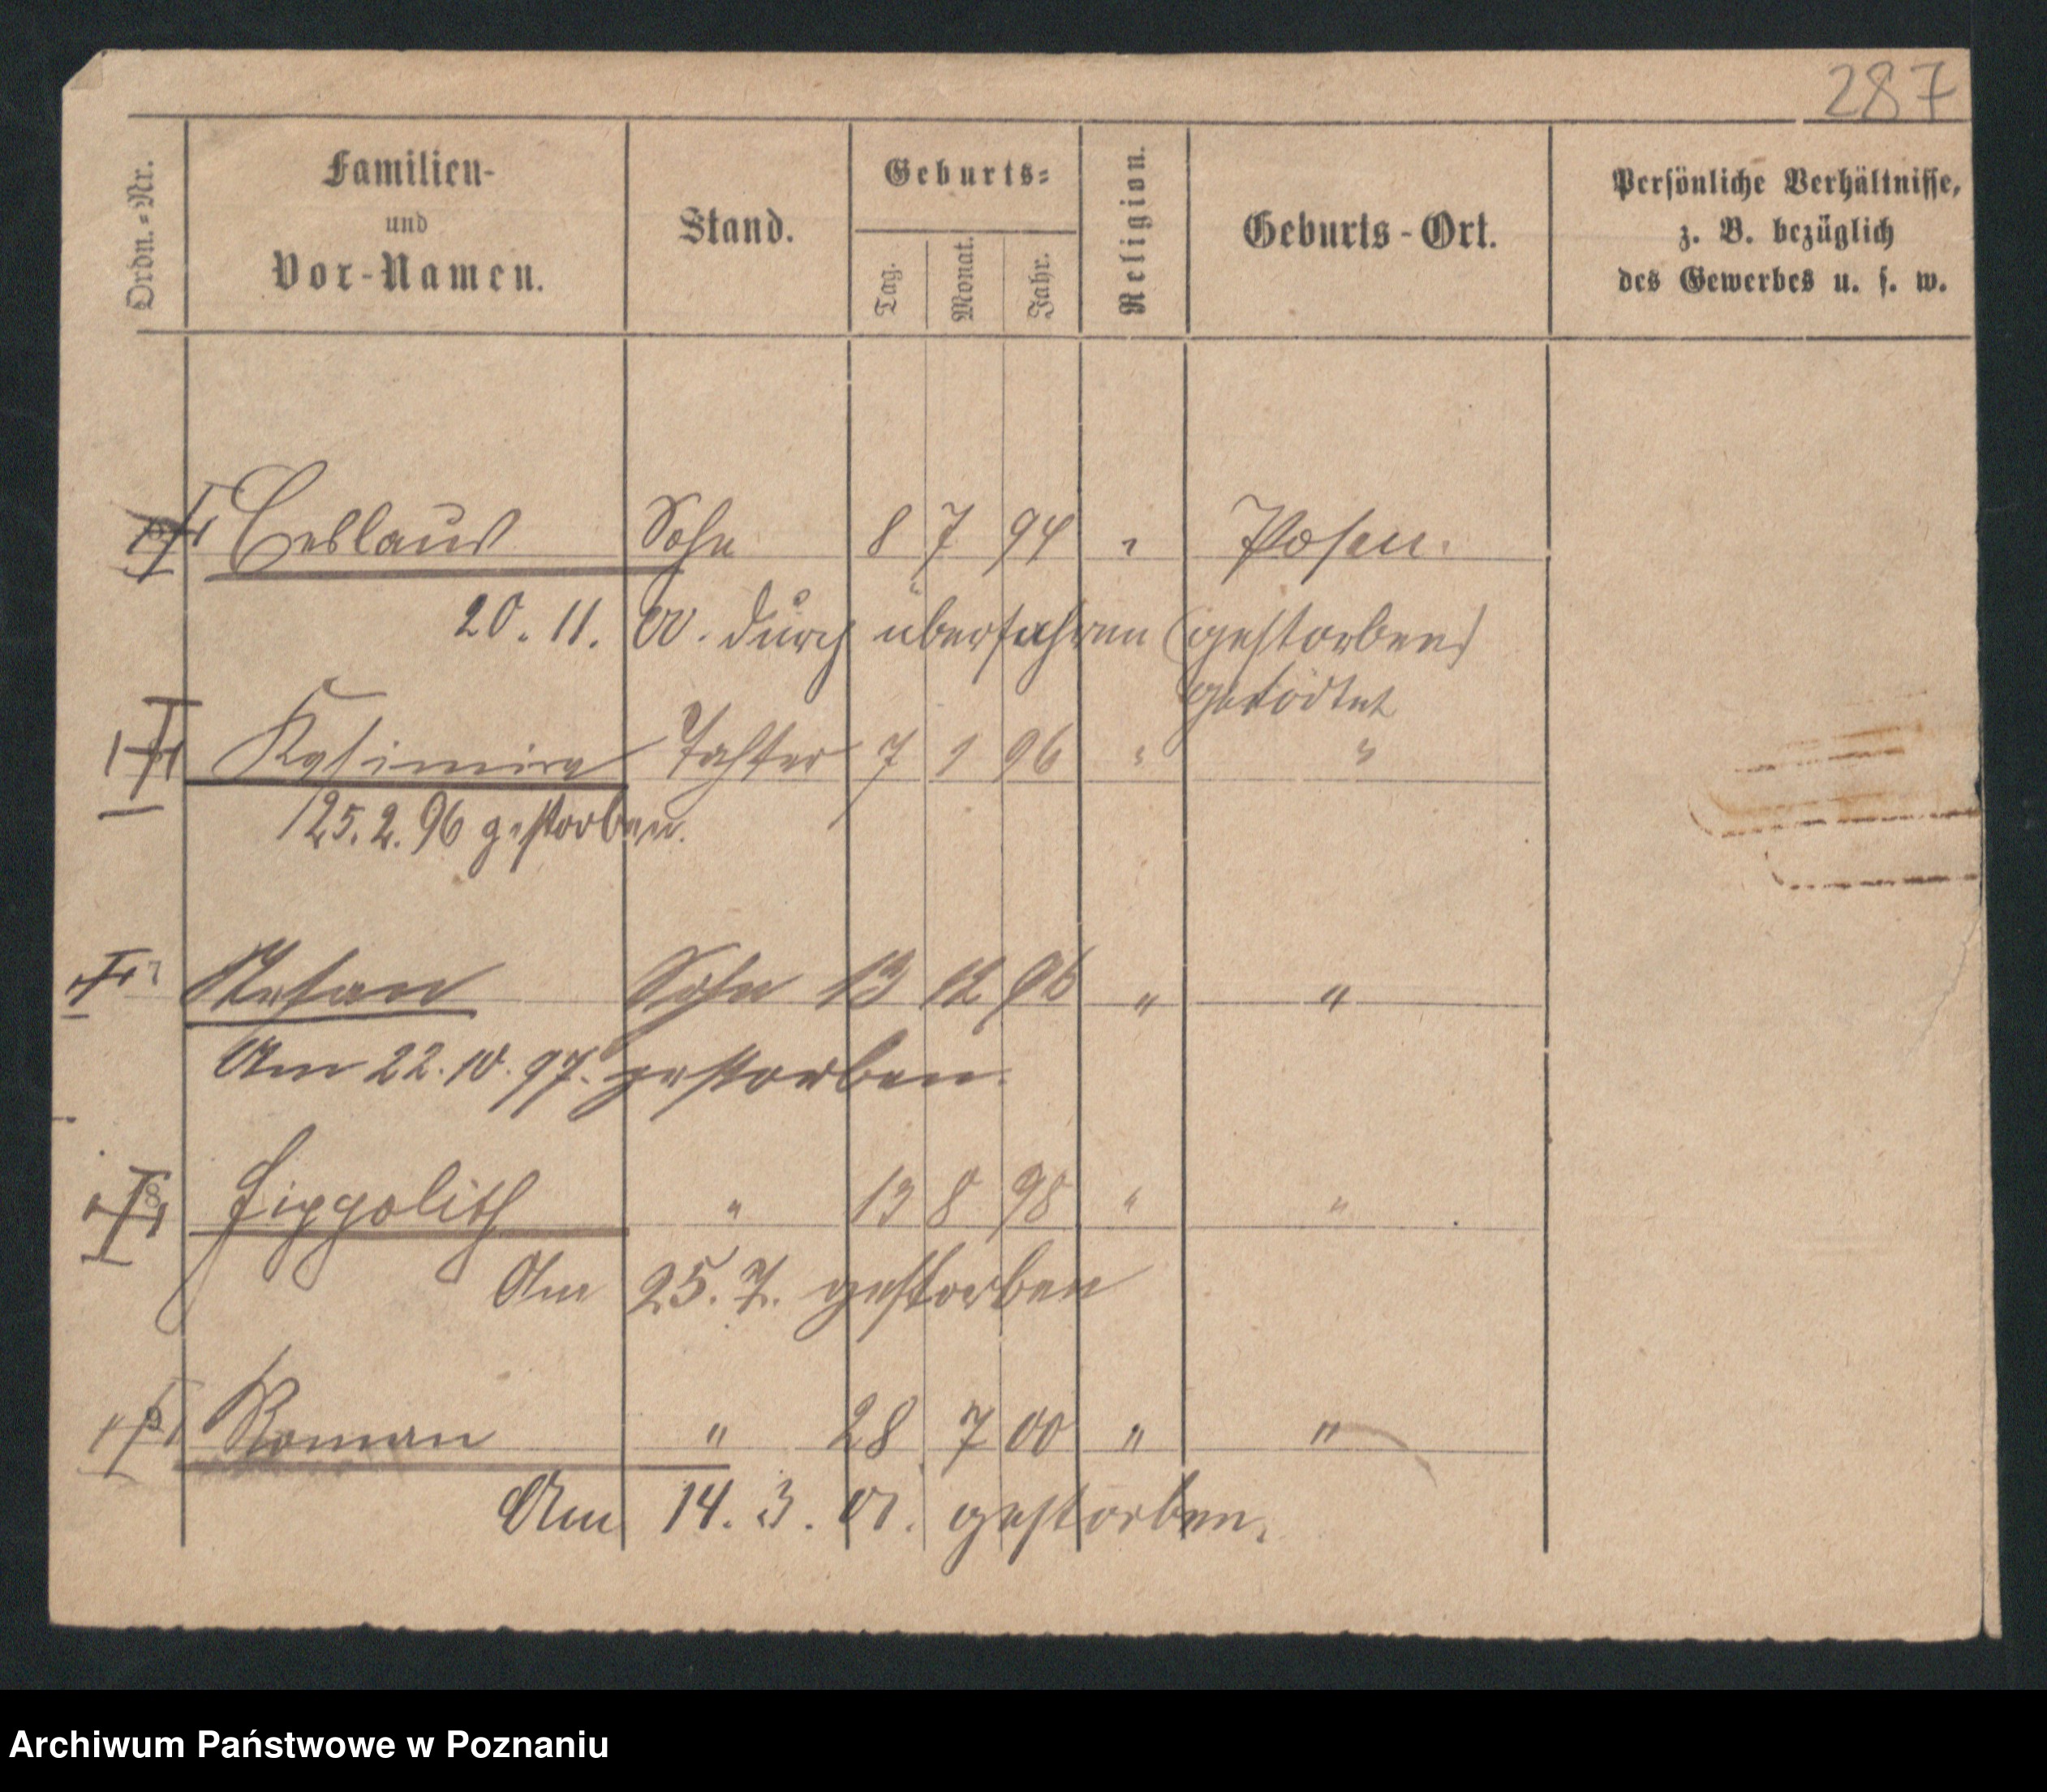 287
Ordn.-Nr.
Familien-
und
Vor-Namen.
Stand.
Geburts-
Tag.
Monat.
Jahr.
Religion.
Geburts-Ort.
Persönliche Verhältnisse,
z. B. bezüglich
des Gewerbes u. s. w.
Ceslaus Sohn 8 7 94 " Posen.
20. 11. 00. durch überfahren (gestorben)
getödtet
Kasimira Tochter 7 1 96 " "
25. 2. 96 gestorben.
7 Stefan Sohn 13 12 96 " "
Am 22. 10. 97. gestorben.
8 Hippolith " 13 8 98 " "
Am 25. 7. gestorben
9 Roman " 28 7 00 " "
Am 14. 3. 01. gestorben.
Archiwum Państwowe w Poznaniu